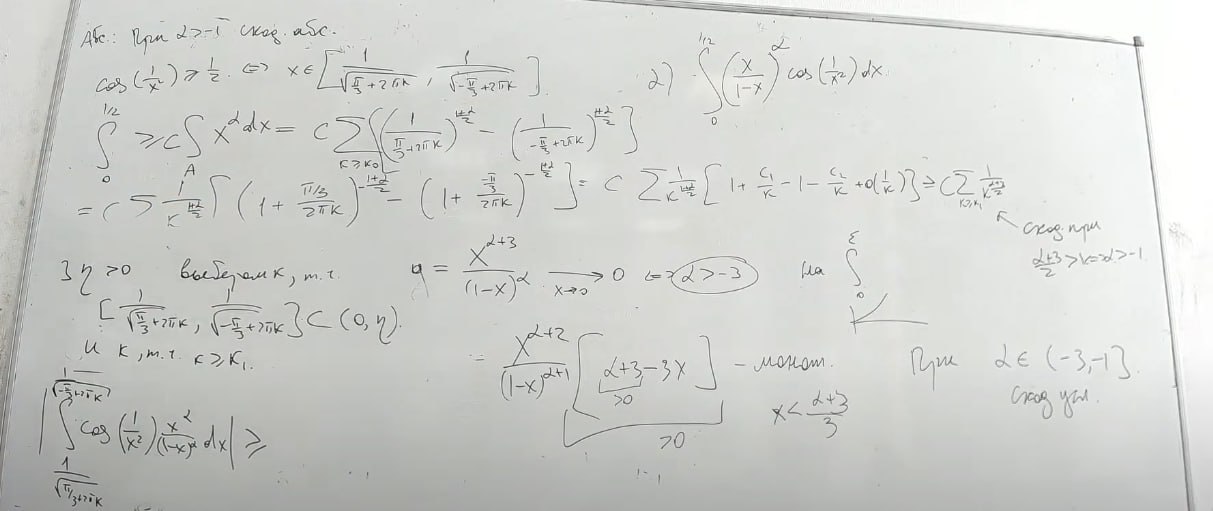 Абс.: При α>-1 сход. абс.
cos(1/x²) ≥ 1/2 ⇔ x ∈ [1/√(π/3+2πk), 1/√(-π/3+2πk)].
2) ∫₀^{1/2} (x/(1-x))^α cos(1/x²) dx.
∫₀^{1/2} ≥ C ∫_A x^α dx = C Σ_{k≥k₀} [(1/(π/3+2πk))^{(1+α)/2} - (1/(-π/3+2πk))^{(1+α)/2}]
= C Σ 1/k^{(1+α)/2} [(1 + (π/3)/(2πk))^{-(1+α)/2} - (1 + (-π/3)/(2πk))^{-(1+α)/2}] = C Σ 1/k^{(1+α)/2} [1 + C₁/k - 1 - C₂/k + o(1/k)] ≥ C Σ_{k≥k₁} 1/k^{(α+3)/2}
сход. при
(α+3)/2 > 1 ⇔ α > -1.
∃ η > 0 выберем k, т.ч.
[1/√(π/3+2πk), 1/√(-π/3+2πk)] ⊂ (0, η).
и k, т.ч. k ≥ k₁.
|∫_{1/√(π/3+2πk)}^{1/√(-π/3+2πk)} cos(1/x²) x^α/(1-x)^α dx| ≥
g = x^{α+3}/(1-x)^α →_{x→0} 0 ⇔ α > -3
на ∫₀^ε
= x^{α+2}/(1-x)^{α+1} [α+3-3x] - монот.
>0
x < (α+3)/3
>0
При α ∈ (-3, -1]
сход усл.